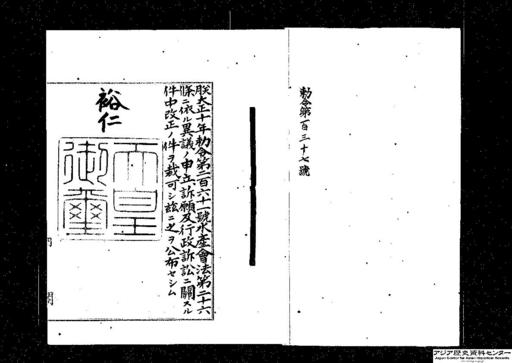 勅令第一百三十七號
朕大正十年勅令第二百六十一號水產會法第二十六
條ニ依ル異議ノ申立訴願及行政訴訟ニ關スル
件中改正ノ件ヲ裁可シ茲ニ之ヲ公布セシム
裕仁
天皇
御璽
内閣
アジア歴史資料センター
Japan Center for Asian Historical Records